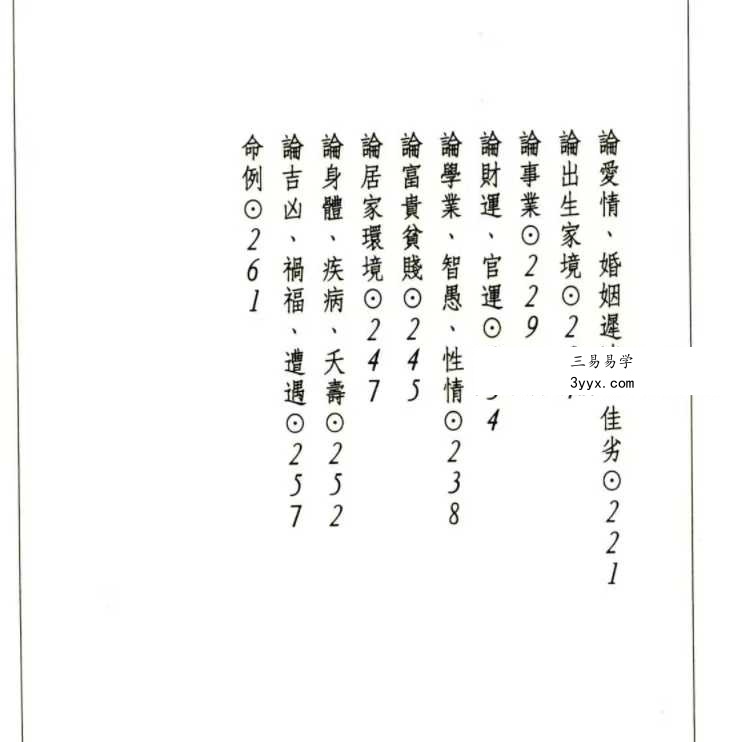 論愛情、婚姻遲 佳劣⊙221
論出生家境⊙2
論事業⊙229
論財運、官運⊙ 4
論學業、智愚、性情⊙238
論富貴貧賤⊙245
論居家環境⊙247
論身體、疾病、夭壽⊙252
論吉凶、禍福、遭遇⊙257
命例⊙261
三易易学
3yyx.com